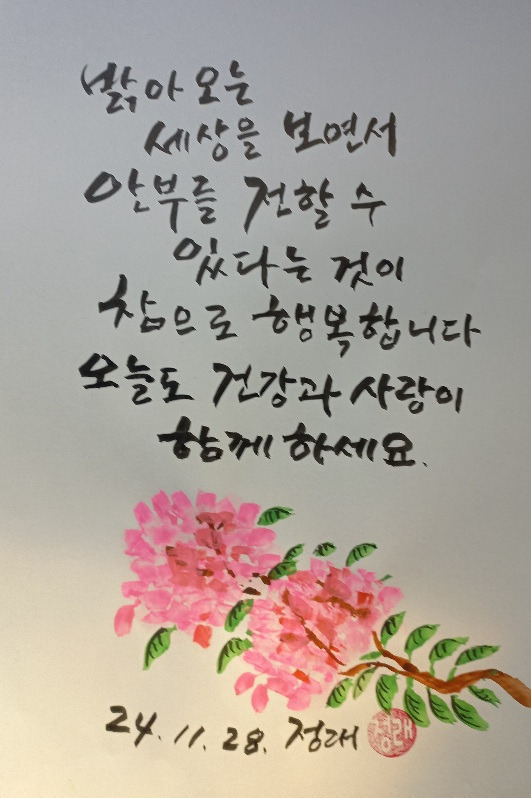 밝아 오는
세상을 보면서
안부를 전할 수
있다는 것이
참으로 행복합니다
오늘도 건강과 사랑이
함께 하세요.
24. 11. 28. 정래
정래